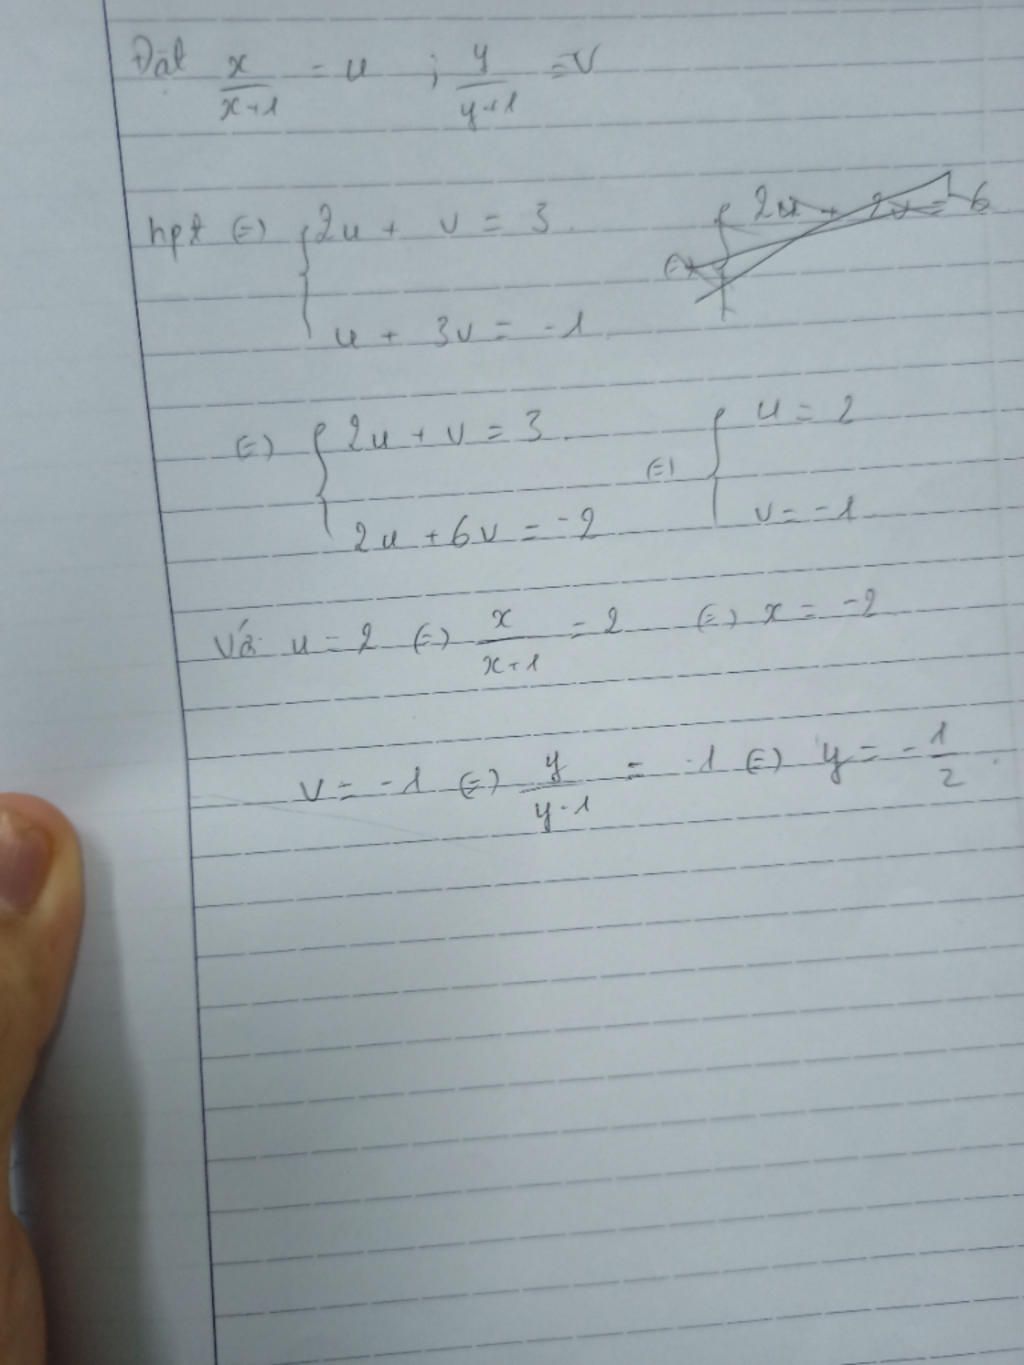 Đặt x/(x+1) = u ; y/(y+1) = v
hpt ⇔ { 2u + v = 3.
u + 3v = -1.
⇔ { 2u + v = 3.
2u + 6v = -2
⇔ { u = 2
v = -1
Với u = 2 ⇔ x/(x+1) = 2 ⇔ x = -2
v = -1 ⇔ y/(y+1) = -1 ⇔ y = -1/2.